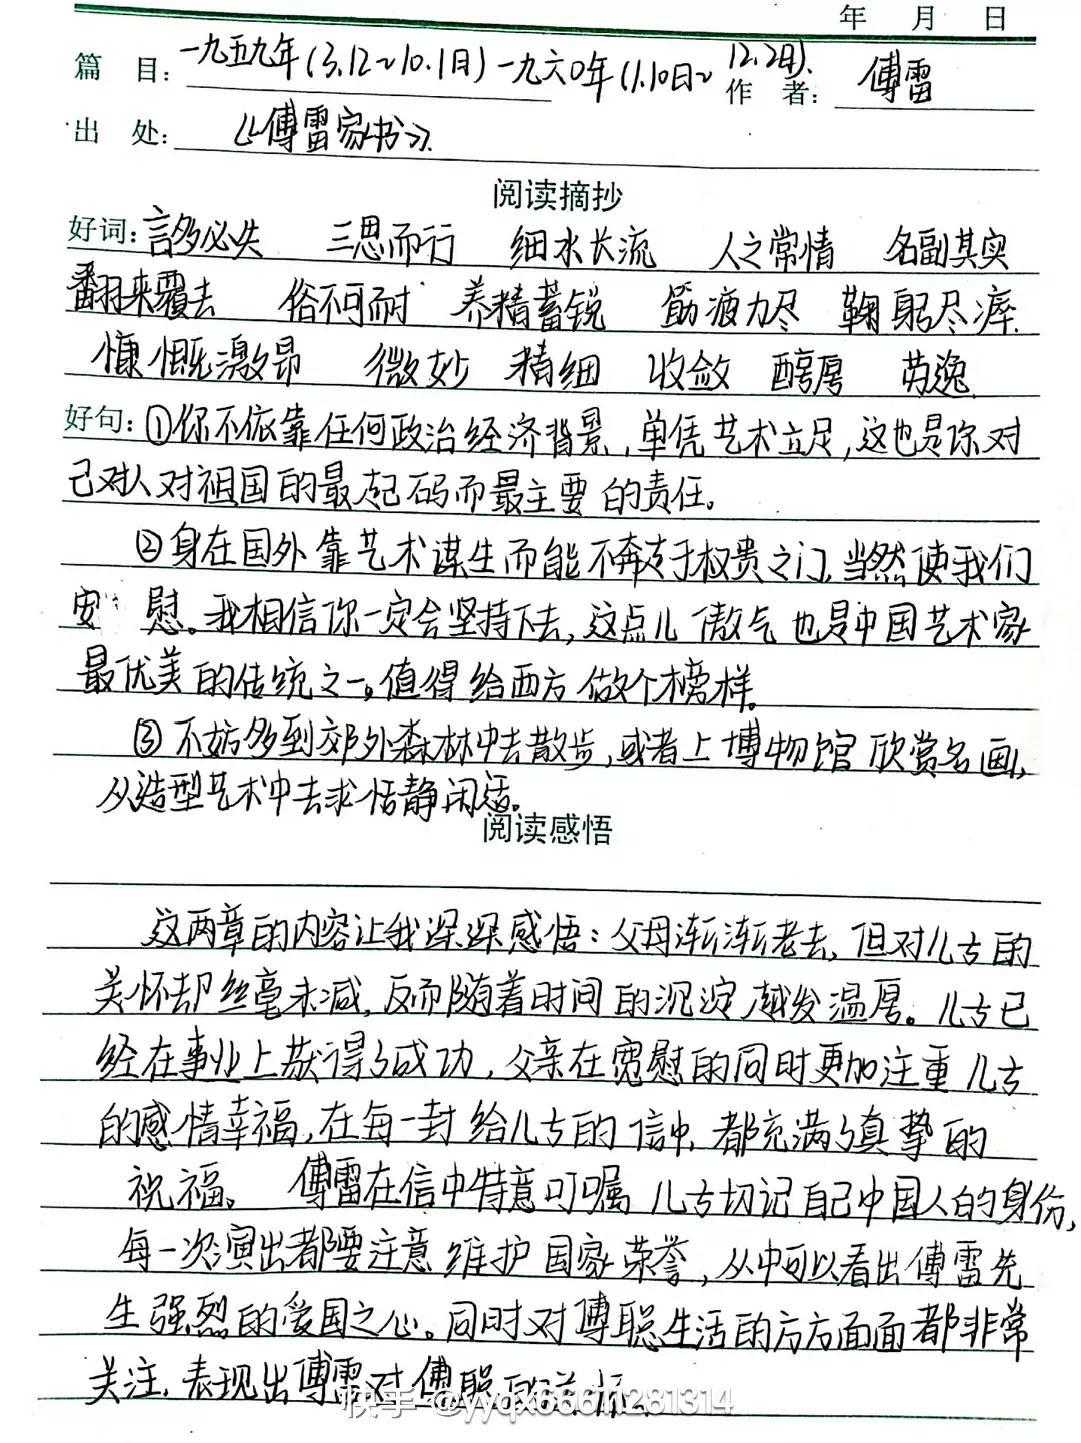 年 月 日
篇 目: 一九五九年(3.12~10.1日)一九六〇年(1.10日~12.2日). 作 者: 傅雷
出 处: 《傅雷家书》.
阅读摘抄
好词: 言多必失 三思而行 细水长流 人之常情 名副其实
翻来覆去 俗不可耐 养精蓄锐 筋疲力尽 鞠躬尽瘁.
慷慨激昂 微妙 精细 收敛 醇厚 劳逸
好句: ①你不依靠任何政治经济背景,单凭艺术立足,这也是你对
己对人对祖国的最起码而最主要的责任。
②身在国外靠艺术谋生而能不奔走于权贵之门,当然使我们
安慰。我相信你一定会坚持下去,这点儿傲气也是中国艺术家
最优美的传统之一。值得给西方做个榜样。
③不妨多到郊外森林中去散步,或者上博物馆欣赏名画,
从造型艺术中去求恬静闲适。
阅读感悟
这两章的内容让我深深感悟:父母渐渐老去,但对儿子的
关怀却丝毫未减,反而随着时间的沉淀越发温厚。儿子已
经在事业上获得了成功,父亲在宽慰的同时更加注重儿子
的感情幸福,在每一封给儿子的信中,都充满了真挚的
祝福。 傅雷在信中特意叮嘱儿子切记自己中国人的身份,
每一次演出都要注意维护国家荣誉,从中可以看出傅雷先
生强烈的爱国之心。同时对傅聪生活的方方面面都非常
关注,表现出傅雷对傅聪的关怀.
快手 @yyqx66611281314